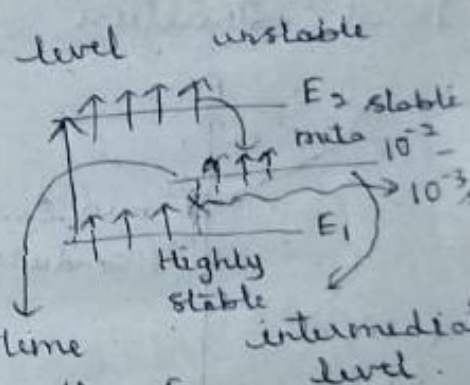 level unstable
E₂ stable
meta 10⁻² -
10⁻³
E₁
Highly
stable
time intermedia
level.